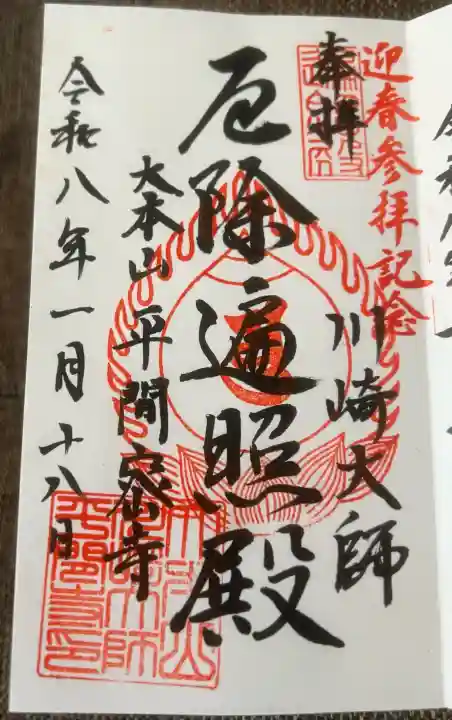 迎春参拝記念
奉拝
川崎大師
厄除遍照殿
大本山平間寺
令和八年一月十八日